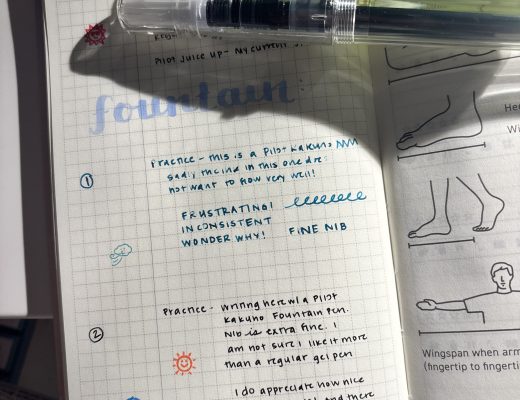 PILOT JUICE UP - MY CURRENT
fountain:
1
Practice - This is a Pilot Kakuno
sadly the ink in this one does
not want to flow very well!
FRUSTRATING!
INCONSISTENT
WONDER WHY! FINE NIB
2
Practice - Writing here w/ a Pilot
Kakuno Fountain Pen.
Nib is extra fine. I
am not sure I like it more
than a regular gel pen
I do appreciate how nice
and there
He
Wi
Wingspan when arm
(fingertip to fingerti